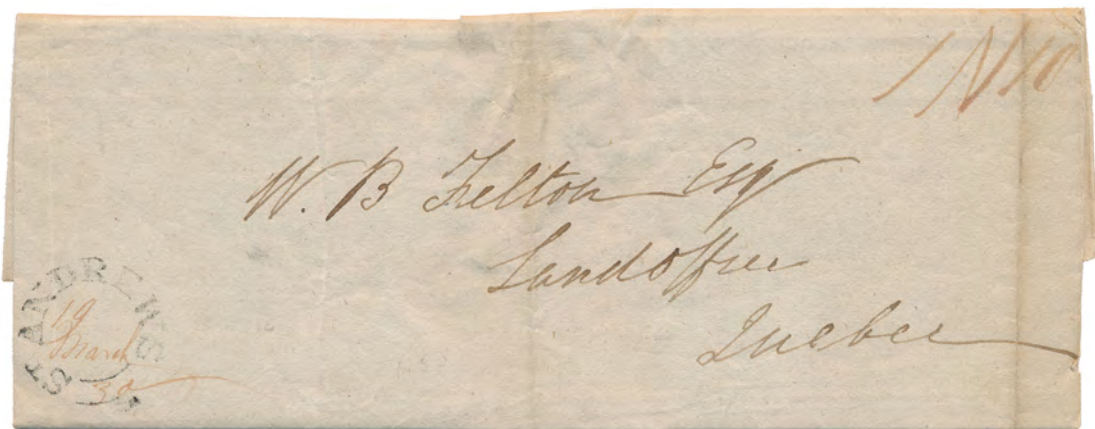 1N10
W. B Felton Esqr
Landoffice
Quebec
ST ANDREWS
19
March
30